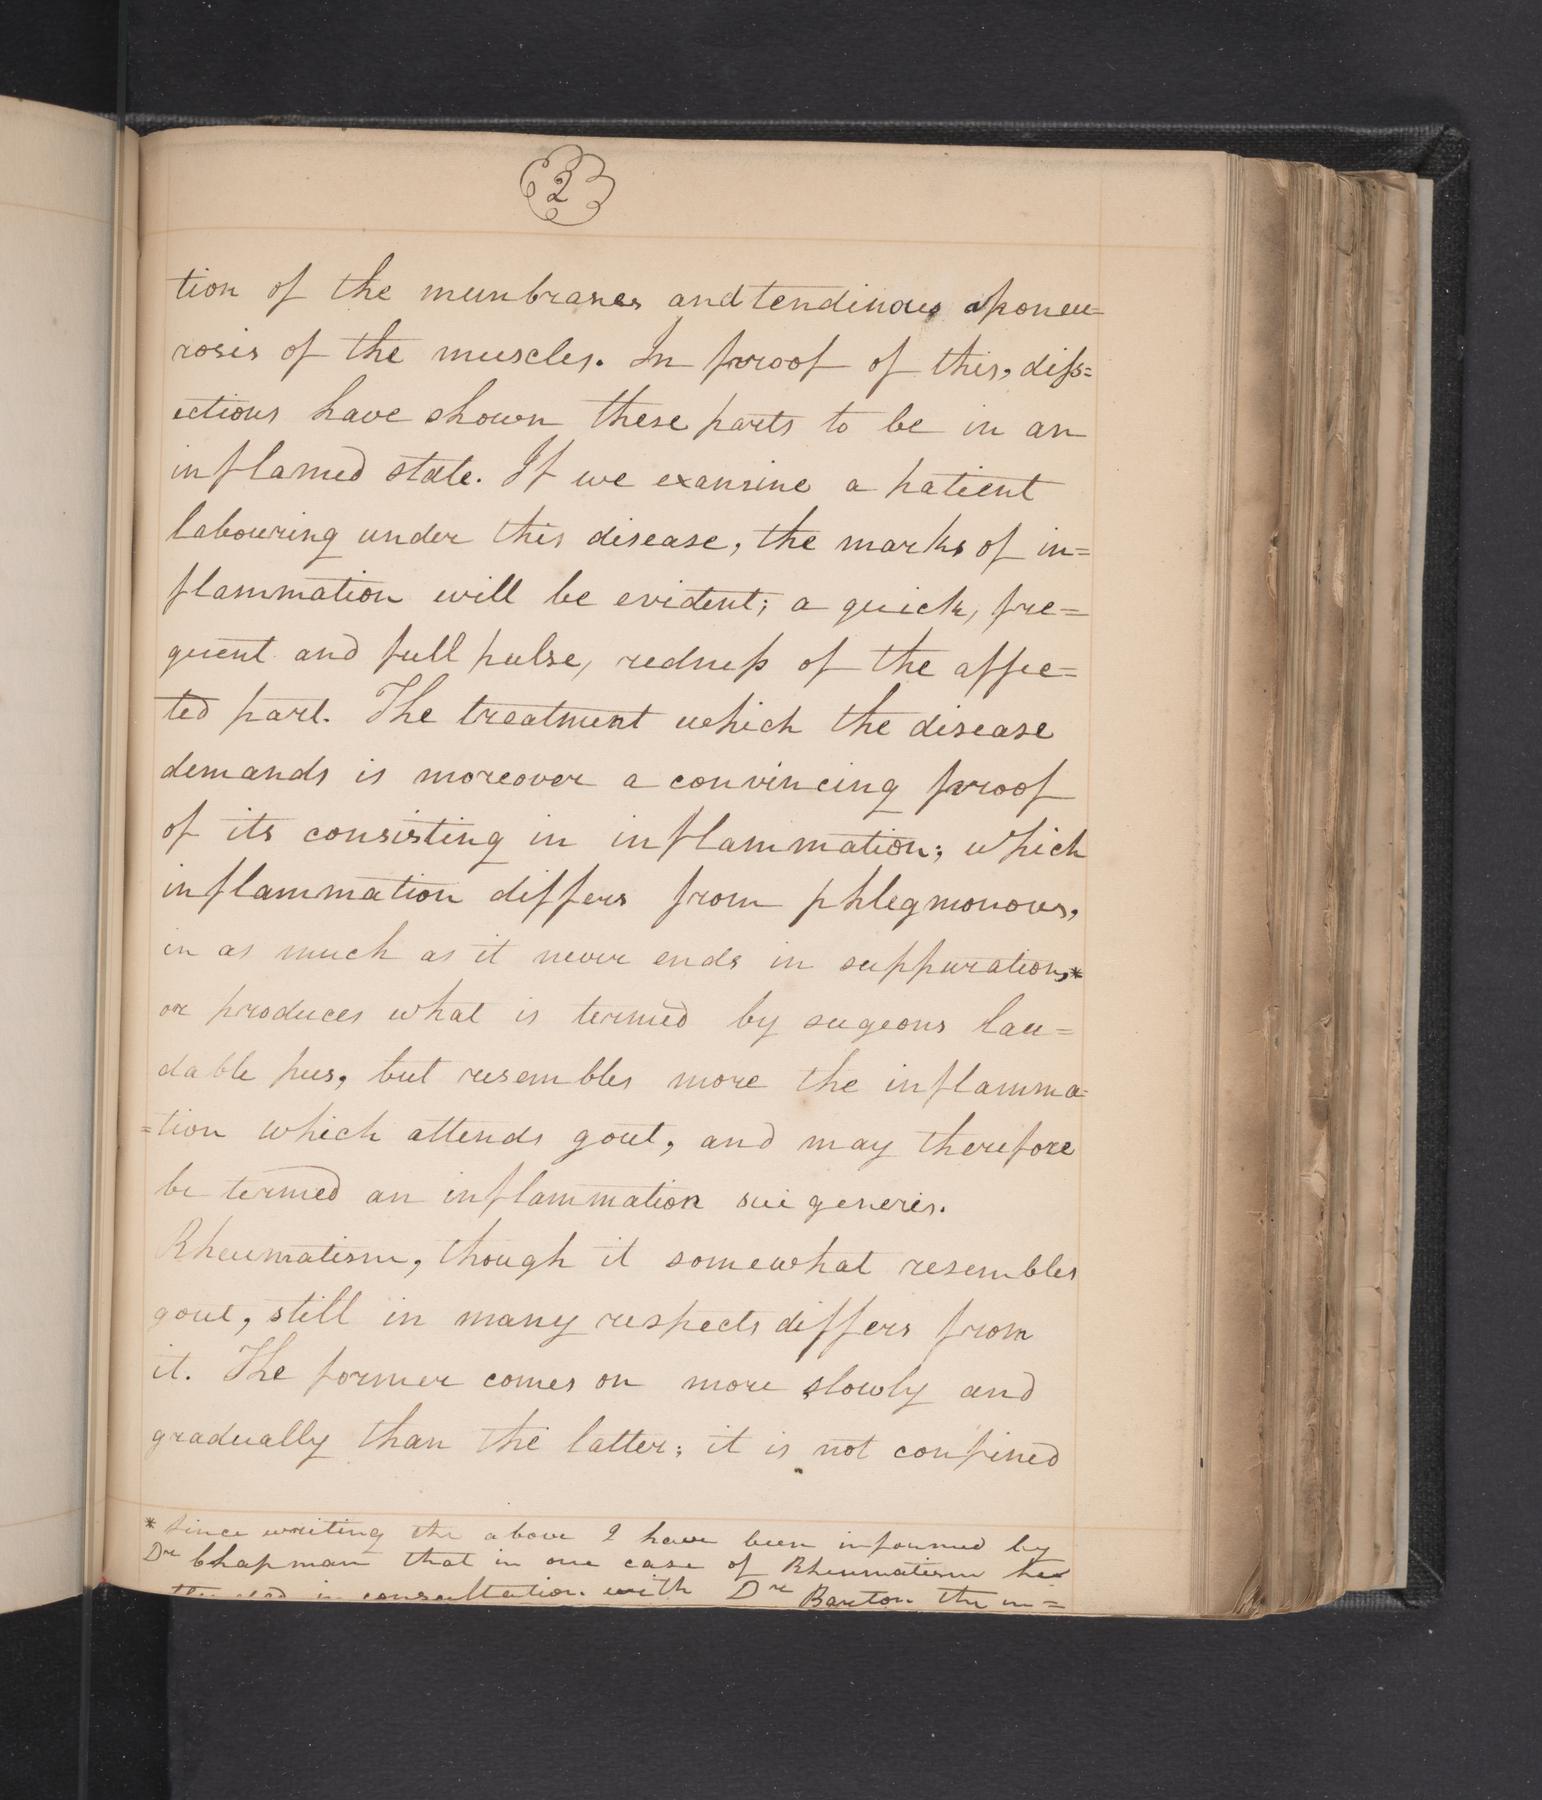 2
tion of the membranes and tendinous aponeu-
rosis of the muscles. In proof of this, diss=
ections have shown these parts to be in an
inflamed state. If we examine a patient
labouring under this disease, the marks of in=
flammation will be evident; a quick, fre=
quent and full pulse, redness of the affec=
ted part. The treatment which the disease
demands is moreover a convincing proof
of its consisting in inflammation; which
inflammation differs from phlegmonous,
in as much as it never ends in suppuration,*
or produces what is termed by sugeons lau=
dable pus, but resembles more the inflamma=
=tion which attends gout, and may therefore
be termed an inflammation sui generis.
Rheumatism, though it somewhat resembles
gout, still in many respects differs from
it. The former comes on more slowly and
gradually than the latter; it is not confined
* Since writing the above I have been informed by
Dr Chapman that in one case of Rheumatism he
in consultation with Dr Barton the in=